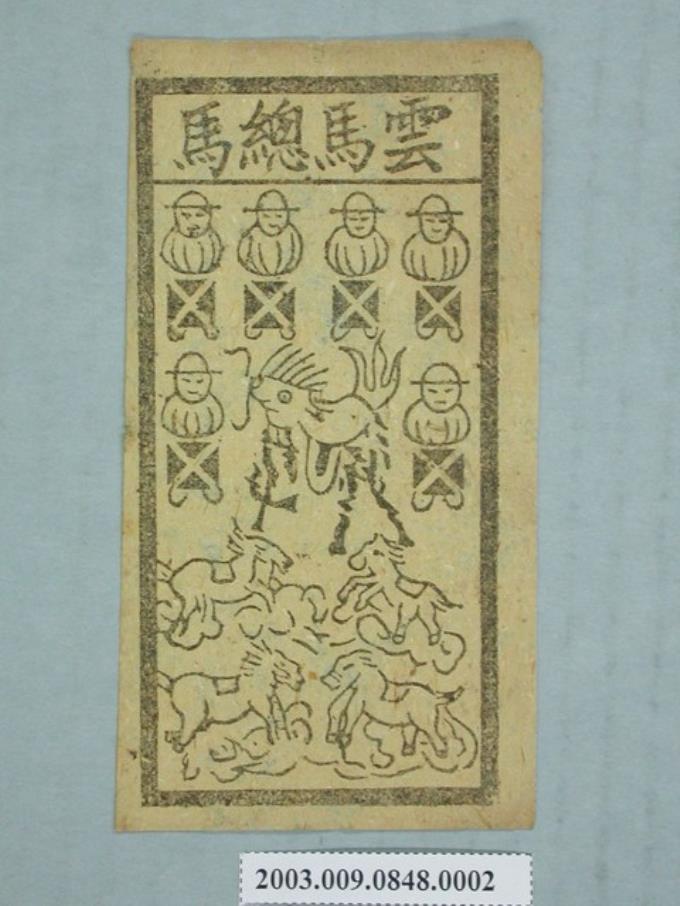 雲馬總馬
2003.009.0848.0002